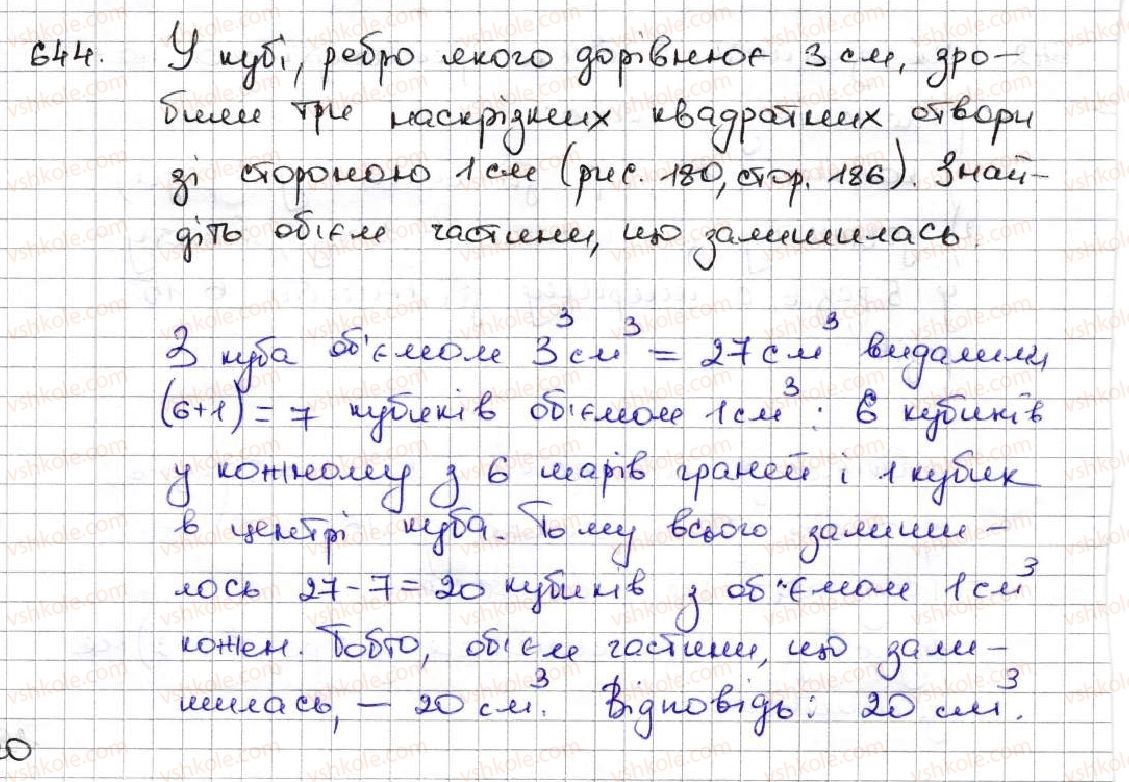 644. У кубі, ребро якого дорівнює 3 см, зро-
били три наскрізних квадратних отвори
зі стороною 1 см (рис. 180, стор. 186). Знай-
діть об'єм частини, що залишилась.
З куба об'ємом 3³ см³ = 27 см³ видалили
(6+1) = 7 кубиків об'ємом 1 см³: 6 кубиків
у кожному з 6 шарів граней і 1 кубик
в центрі куба. Тому всього залиши-
лось 27-7=20 кубиків з об'ємом 1 см³
кожен. Тобто, об'єм частини, що зали-
шилась, – 20 см³. Відповідь: 20 см³.